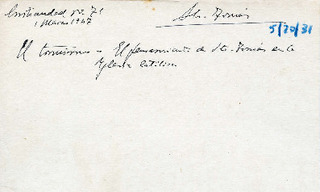 Cristiandad nº 71
1 Marzo 1947
Sto. Tomás
5/20/31
El tomismo = El pensamiento de Sto. Tomás en la
Iglesia católica